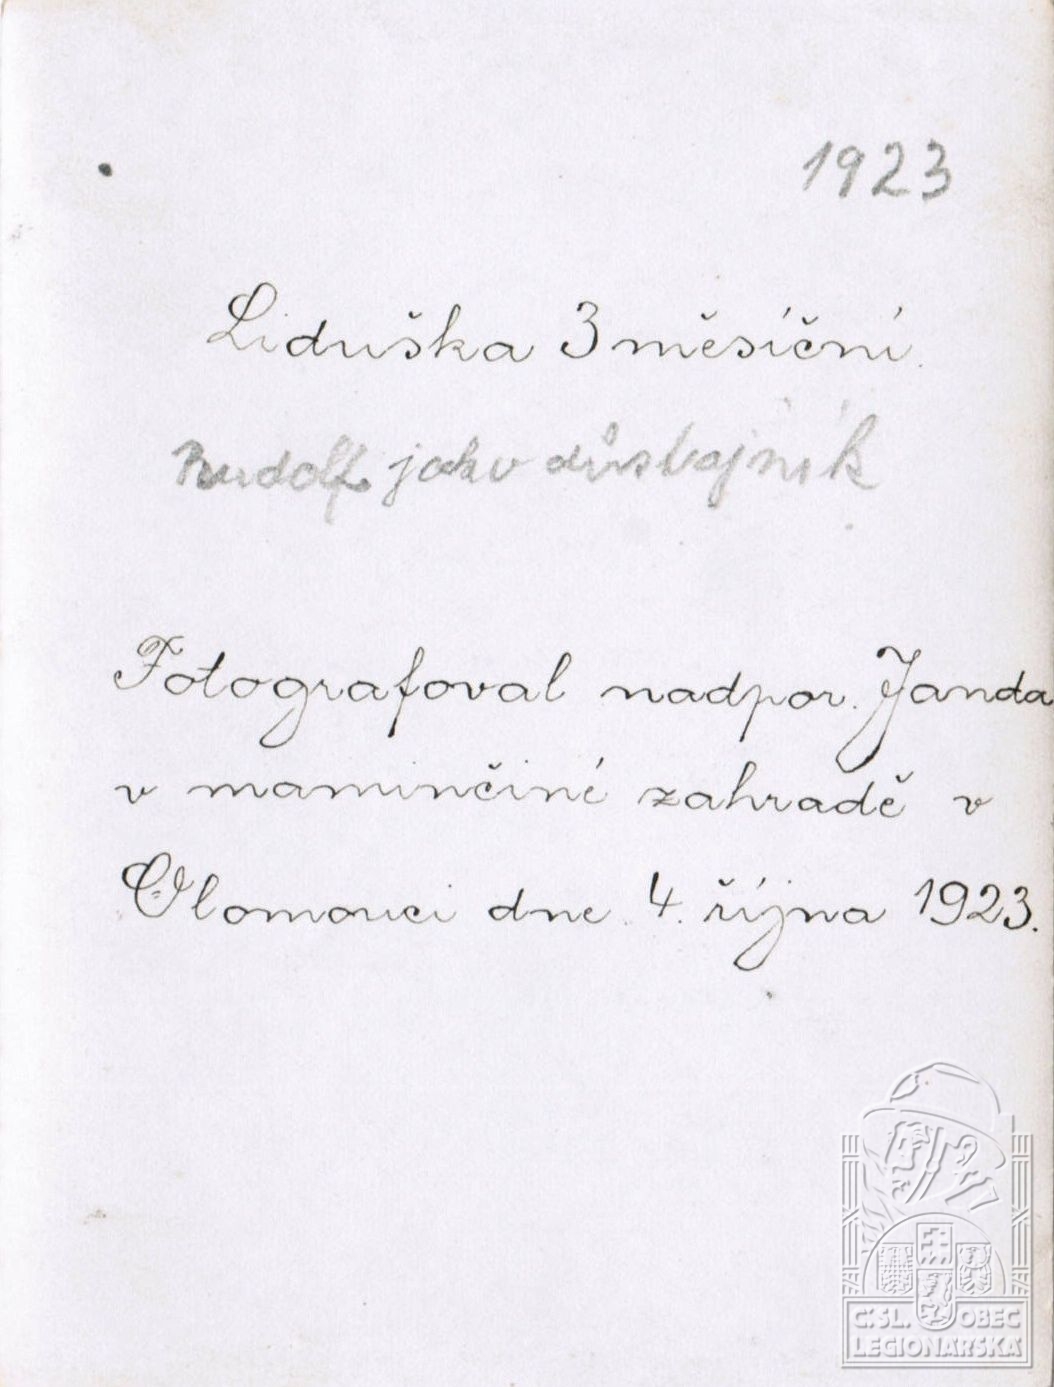 1923
Liduška 3 měsíční.
Rudolf jako důstojník
Fotografoval nadpor. Janda
v maminčiné zahradě v
Olomouci dne 4. října 1923.
Č.SL. OBEC
LEGIONÁŘSKÁ